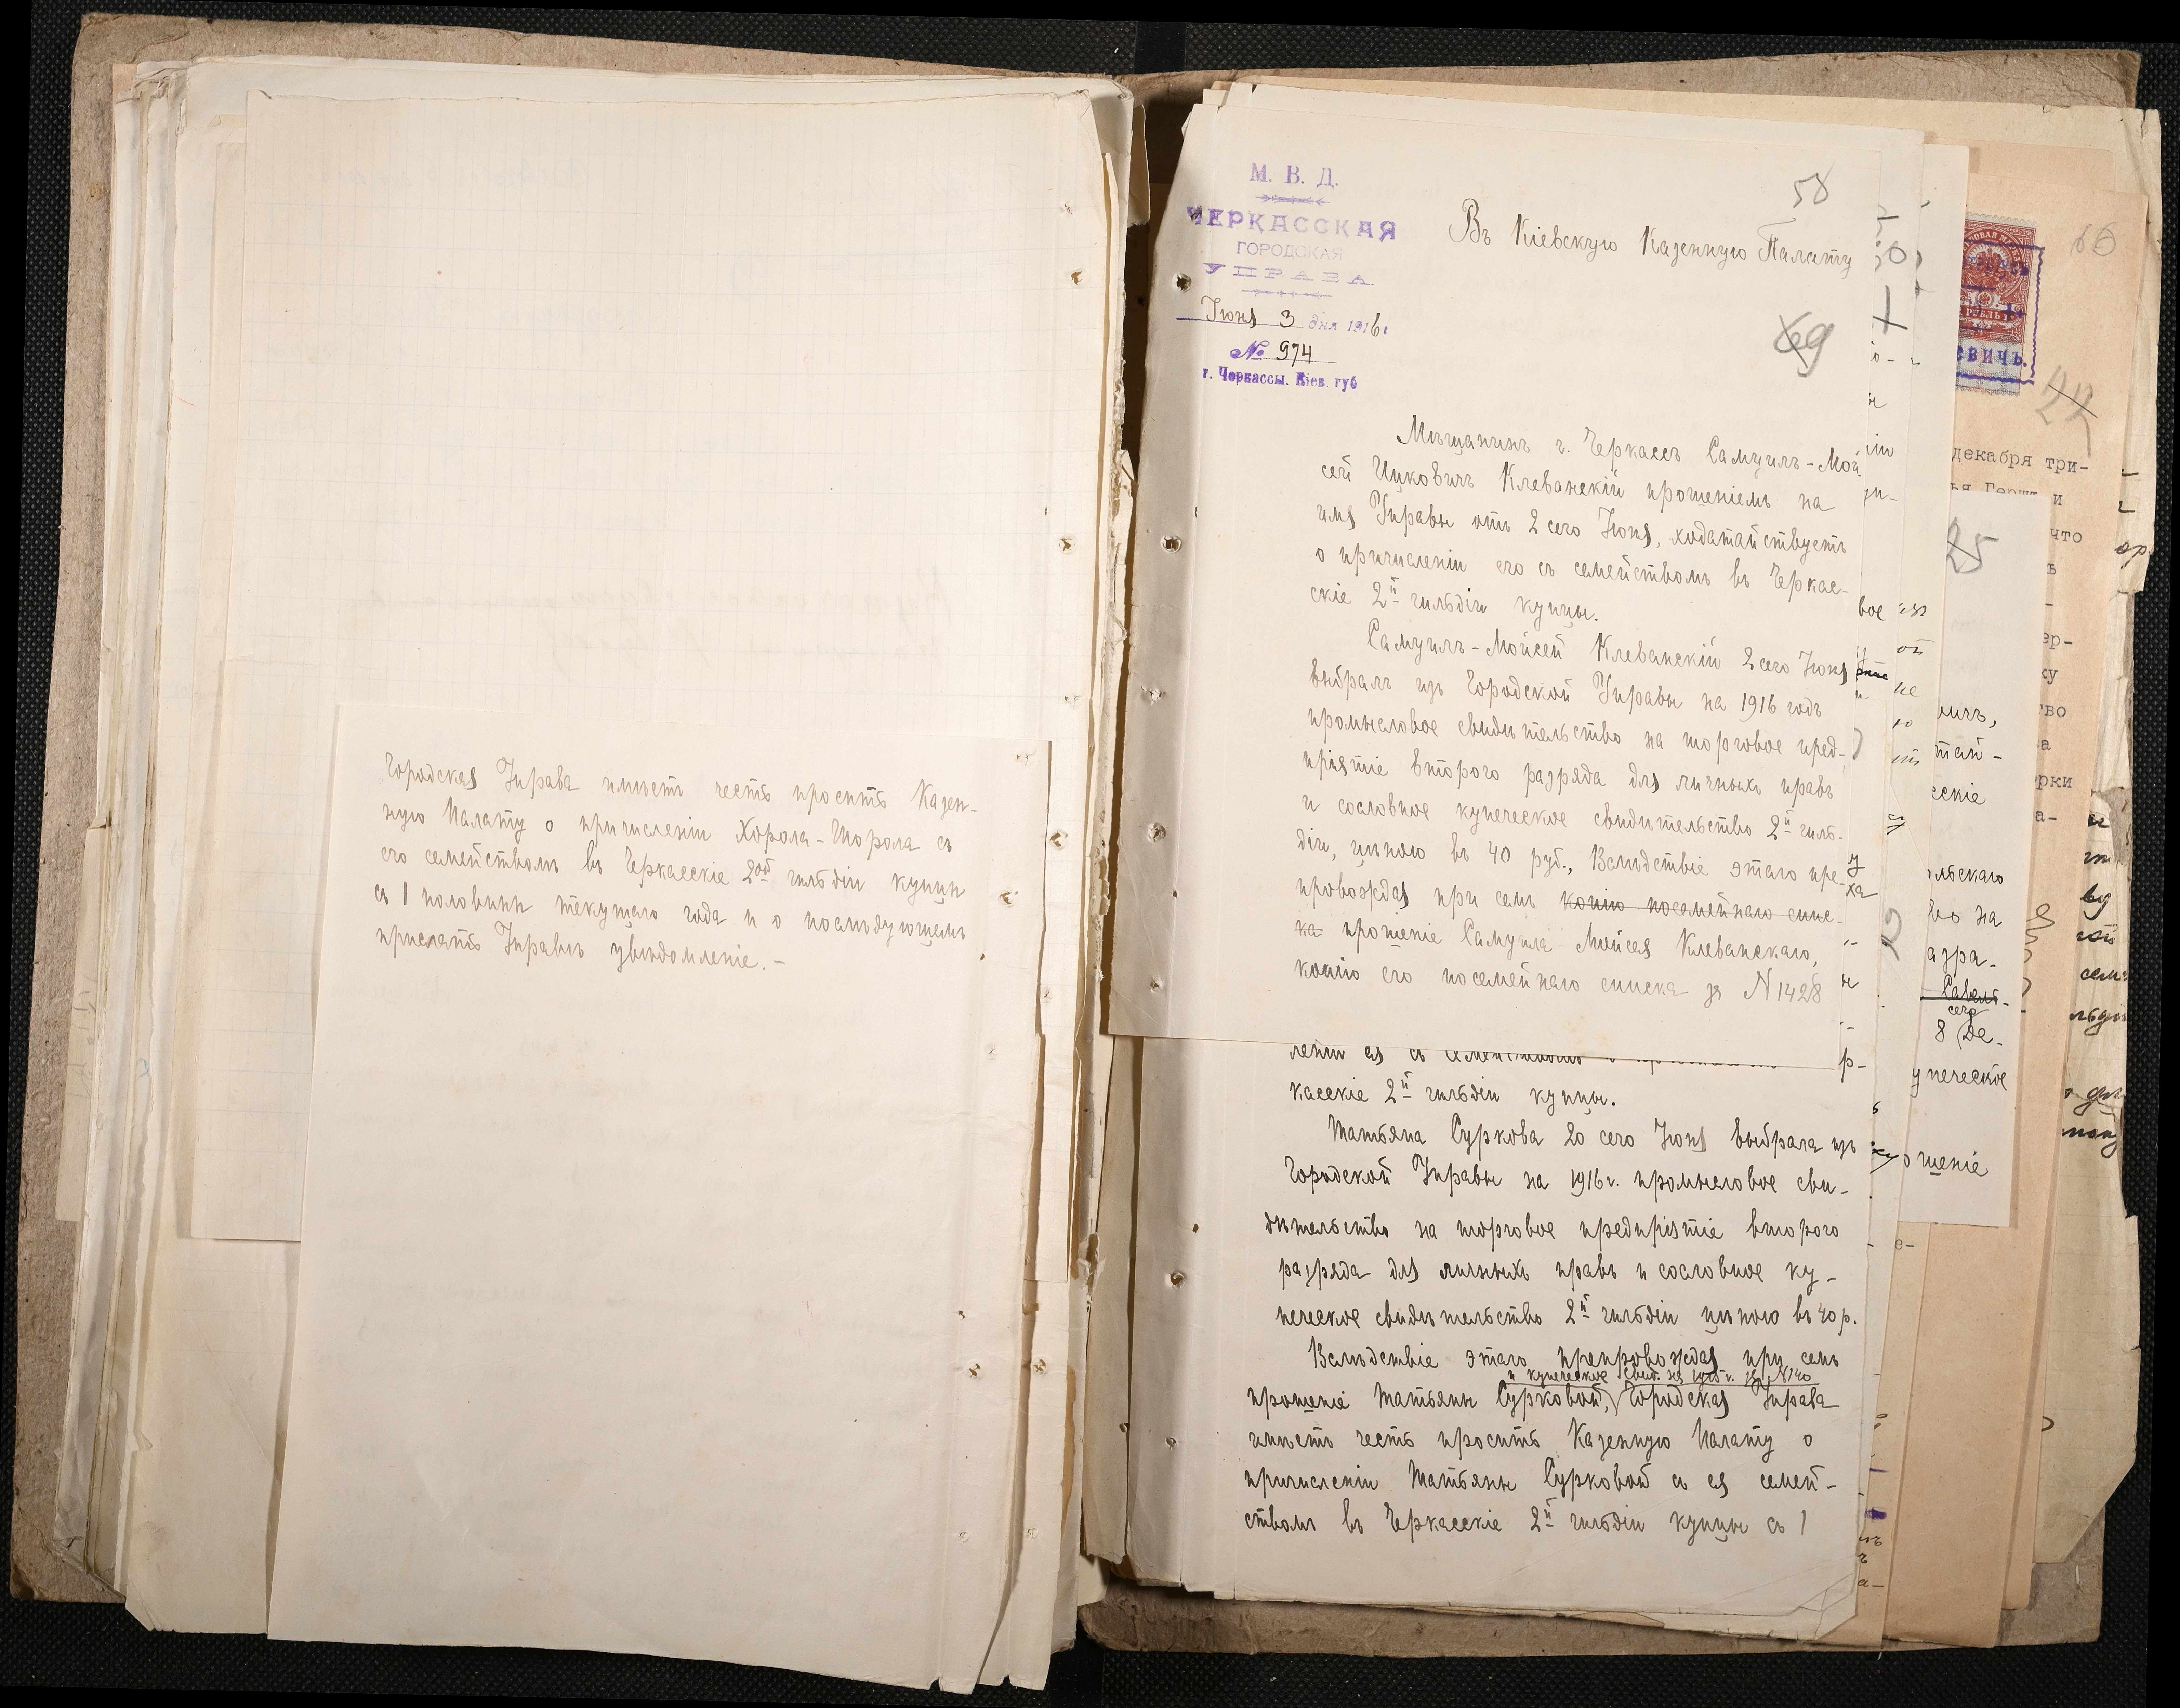 Городская Управа имѣетъ честь просить Казен-
ную Палату о причисленіи Хорола-Шорола съ
его семействомъ въ Черкасскіе 2ой гильдіи купцы
съ 1 половины текущаго года и о послѣдующемъ
прислать Управѣ увѣдомленіе.-
М. В. Д.
ЧЕРКАССКАЯ
ГОРОДСКАЯ
УПРАВА.
Іюня 3 дня 1916 г.
№ 974
г. Черкассы. Кіев. губ
58
Въ Кіевскую Казенную Палату
69
Мѣщанинъ г. Черкассъ Самуилъ-Мой
сей Ицковичъ Клеванскій прошеніемъ на
имя Управы отъ 2 сего Іюня, ходатайствуетъ
о причисленіи его съ семействомъ въ Черкас-
скіе 2й гильдіи купцы.
Самуилъ-Мойсей Клеванскій 2 сего Іюня
выбралъ изъ Городской Управы на 1916 годъ
промысловое свидѣтельство на торговое пред-
пріятіе второго разряда для личныхъ правъ
и сословное купеческое свидѣтельство 2й гиль-
діи, цѣною въ 40 руб., Вслѣдствіе этого пре-
провождая при семъ копію посемейнаго спис-
ка прошеніе Самуила Мойсея Клеванскаго,
копію его посемейнаго списка за N 1428
леніи ея съ семействомъ
касскіе 2й гильдіи купцы.
Татьяна Суркова 20 сего Іюня выбрала изъ
Городской Управы на 1916 г. промысловое сви-
дѣтельство на торговое предпріятіе второго
разряда для личныхъ правъ и сословное ку-
печеское свидѣтельство 2й гильдіи цѣною въ 40 р.
Вслѣдствіе этого препровождая при семъ
и купеческое свид. на 1915 г. за N 140
прошеніе Татьяны Сурковой, Городская Управа
имѣетъ честь просить Казенную Палату о
причисленіи Татьяны Сурковой съ ея семей-
ствомъ въ Черкасскіе 2й гильдіи купцы съ 1
66
РУБЛЬ
евичъ.
22
декабря три-
и
что
ер-
ку
во
рки
25
вичъ,
тай-
сскіе
ольскаго
во на
азра-
сего
8 Де-
упеческое
ошеніе